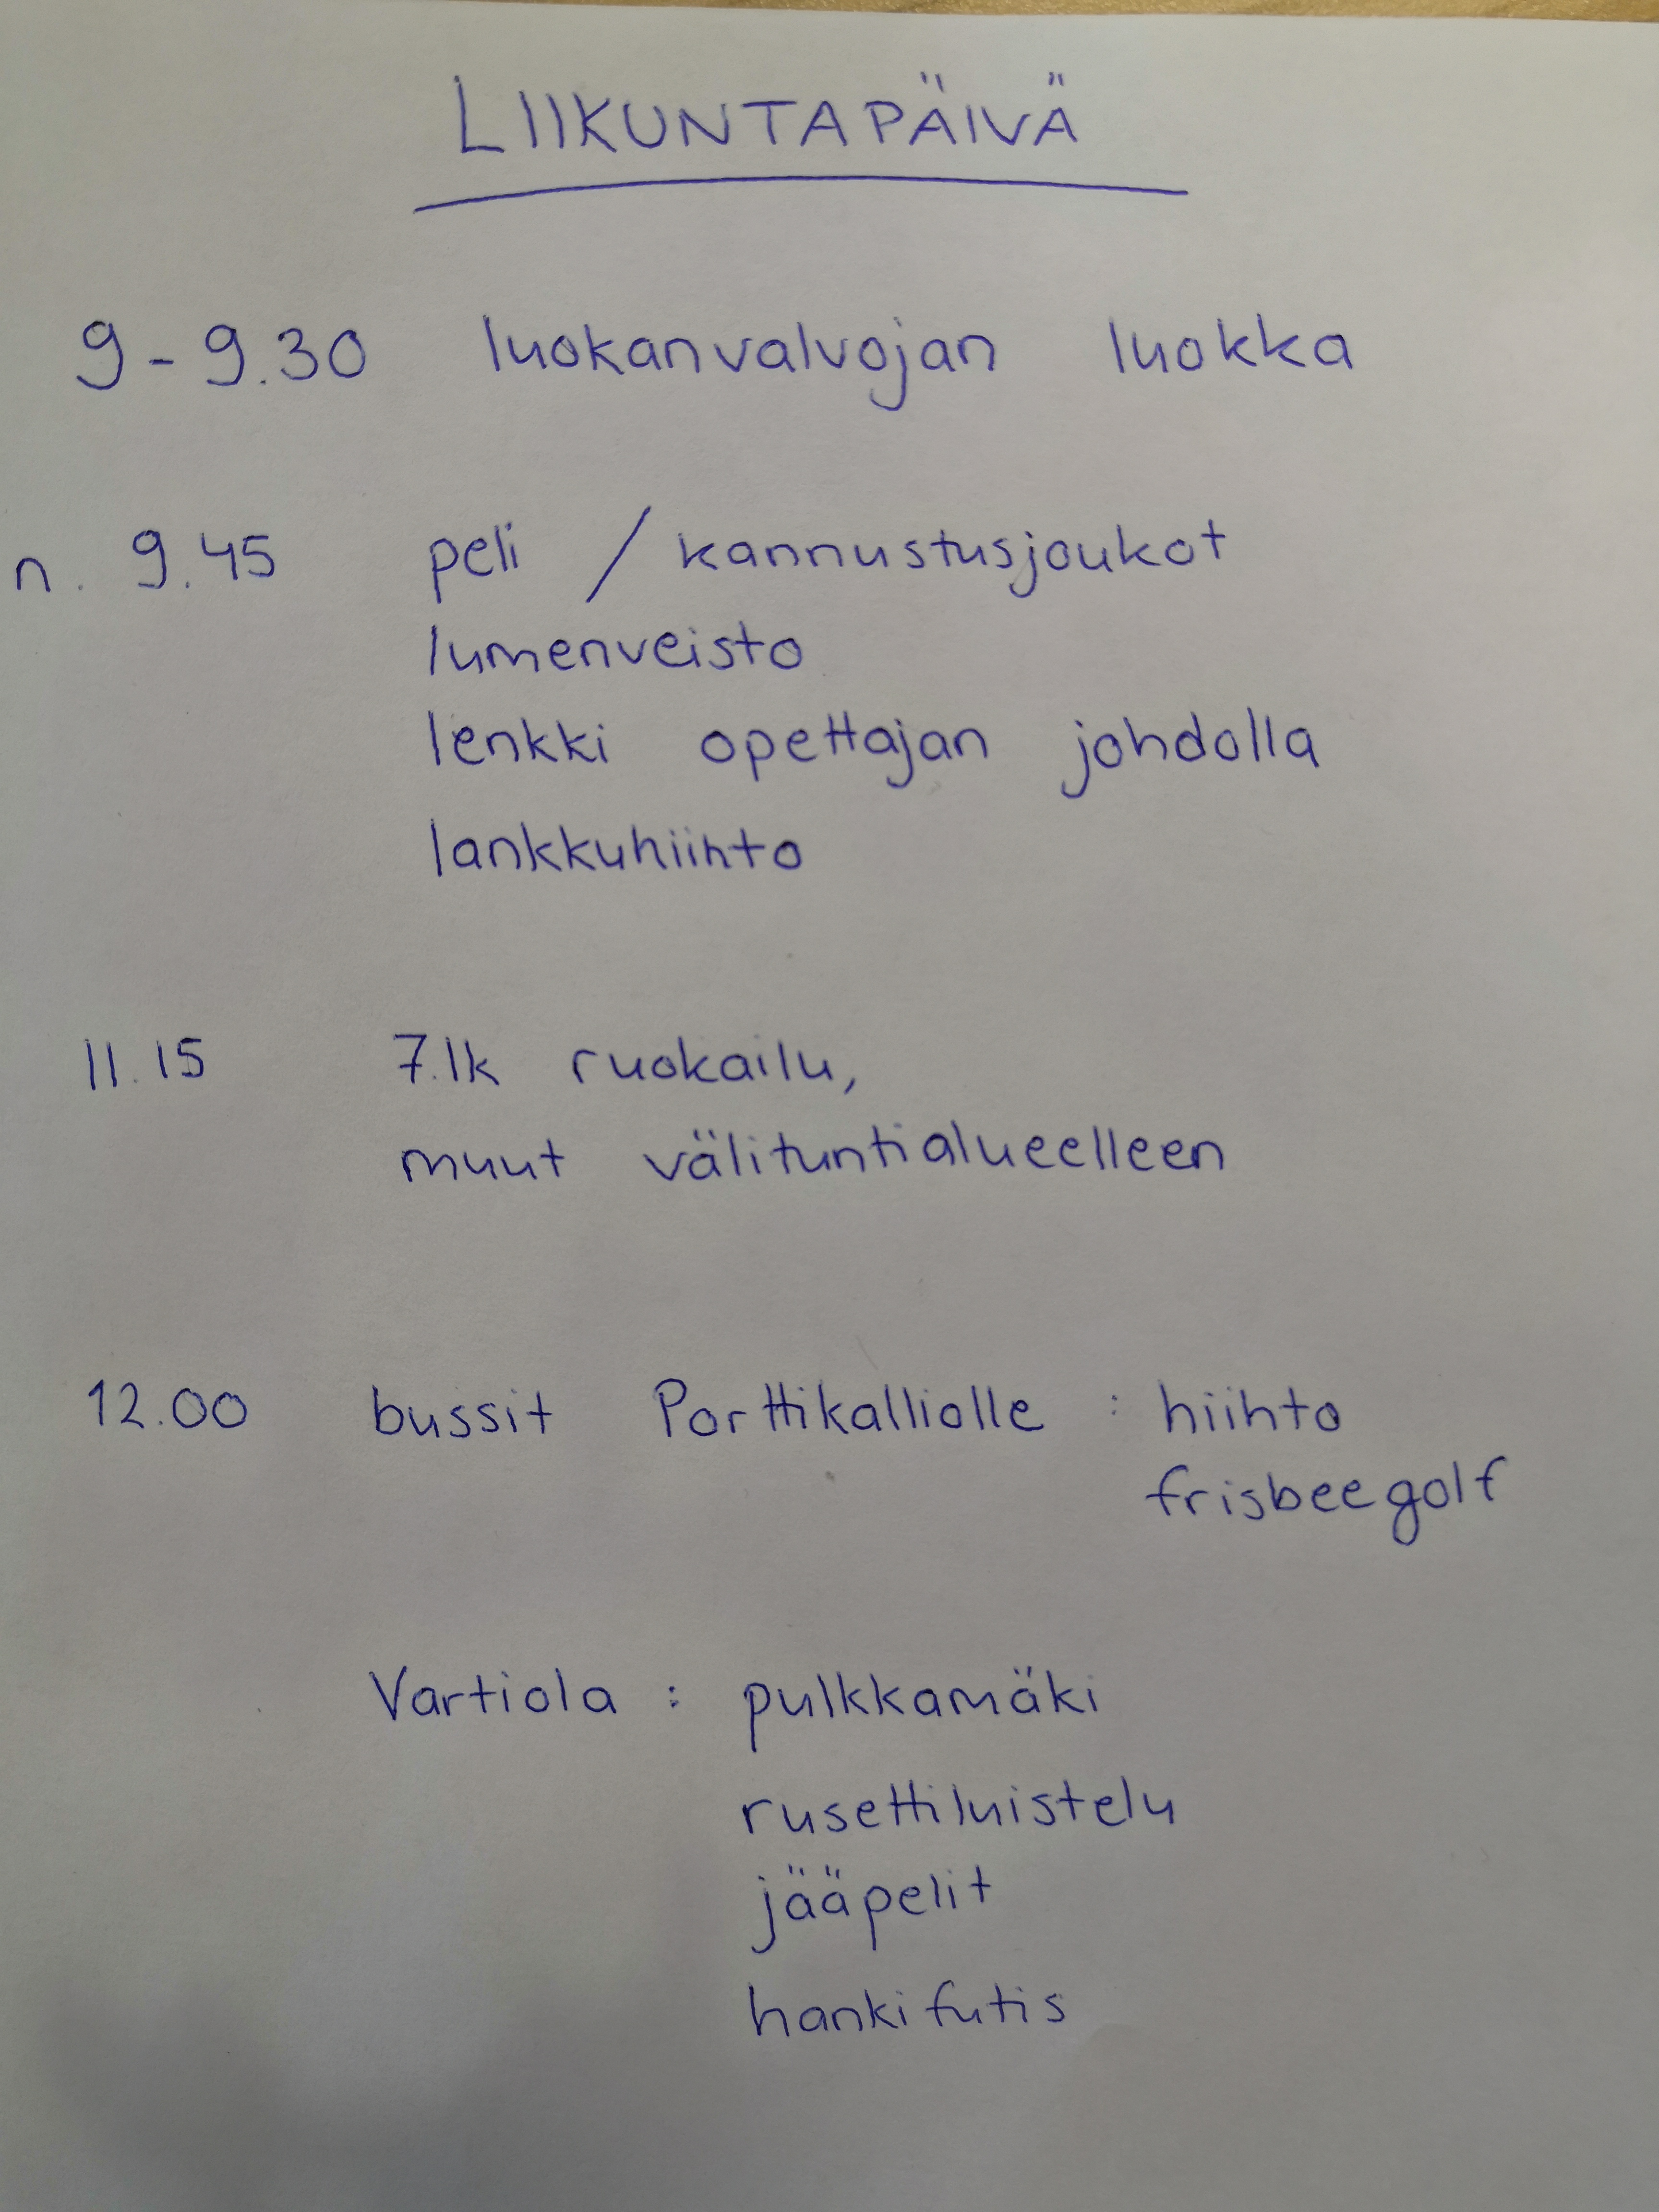 LIIKUNTAPÄIVÄ
9-9.30 luokanvalvojan luokka
n. 9.45 peli / kannustusjoukot
lumenveisto
lenkki opettajan johdolla
lankkuhiihto
11.15 7.lk ruokailu,
muut välituntialueelleen
12.00 bussit Porttikalliolle : hiihto
frisbeegolf
Vartiola : pulkkamäki
rusettiluistelu
jääpelit
hankifutis